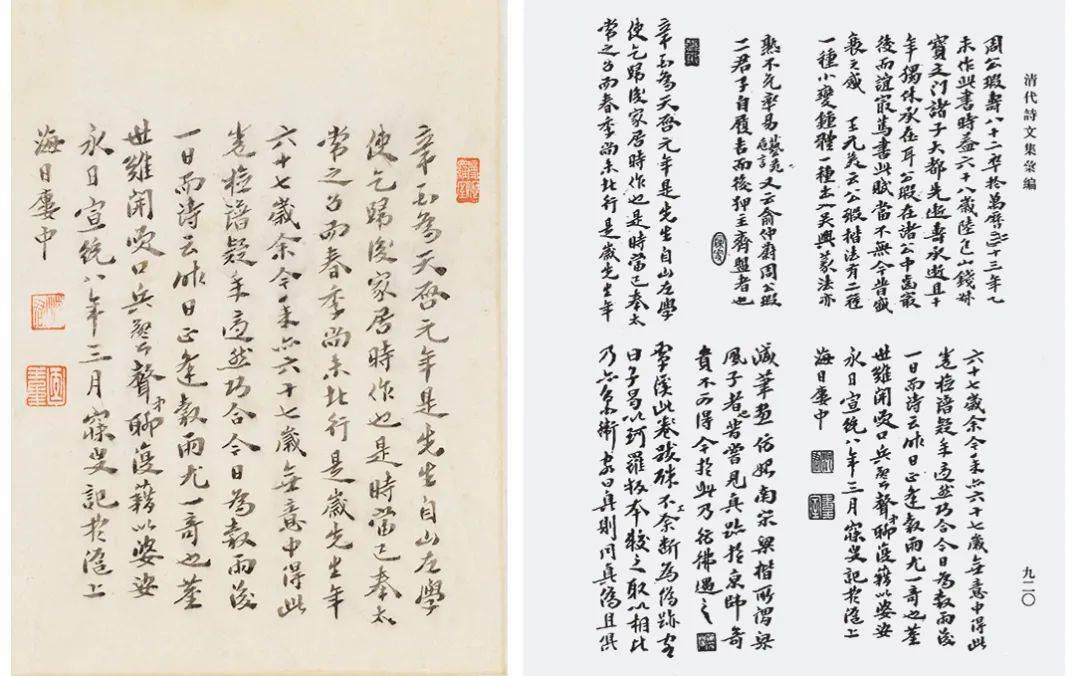 辛酉為天啓元年是先生自山左學
使乞歸後家居時作也是時當已奉太
常之召而春季尚未北行是歲先生年
六十七歲余今年亦六十七歲無意中得此
卷檢譜疑年適然巧合今日為穀雨後
一日而詩云昨日正逢穀雨尤一奇也塵
世難開笑口兵聲才聊復藉以婆娑
永日宣統八年三月寐叟記於滬上
海日廔中
清代詩文集彙編
周公瑕壽八十二卒於萬曆二十三年乙
未作此書時蓋六十八歲陸包山錢叔
寶文門諸子大都先逝壽承逝且十
年獨休承在耳公瑕在諸公中齒最
後而誼最篤書此賦當不無今昔盛
衰之感 王元美云公瑕楷法有二種
一種小變鍾體一種出入吳興蒙法亦
熟不免率易 藝苑巵言 又云俞仲蔚周公瑕
二君子自履吉而後狎主齊盟者也
辛酉為天啓元年是先生自山左學
使乞歸後家居時作也是時當已奉太
常之召而春季尚未北行是歲先生年
六十七歲余今年亦六十七歲無意中得此
卷檢譜疑年適然巧合今日為穀雨後
一日而詩云昨日正逢穀雨尤一奇也塵
世難開笑口兵聲才聊復藉以婆娑
永日宣統八年三月寐叟記於滬上
海日廔中
減筆畫仿始南宋梁楷所謂梁
風子者也嘗見真跡於京師奇
貴不可得今於此乃彷彿遇之
溪此卷跋殊不工余斷為偽跡客
曰子曷以珂羅板本較之取以相比
乃亦術家曰真則同真偽且俱
九二〇